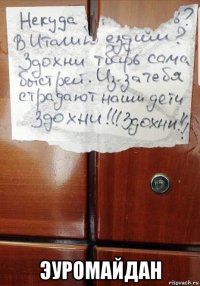 Некуда в?
В Италии ездили?
Здохни тварь сама
быстрей. Из за тебя
страдают наши дети
Здохни!!! Здохни!!
ЭУРОМАЙДАН
risovach.ru